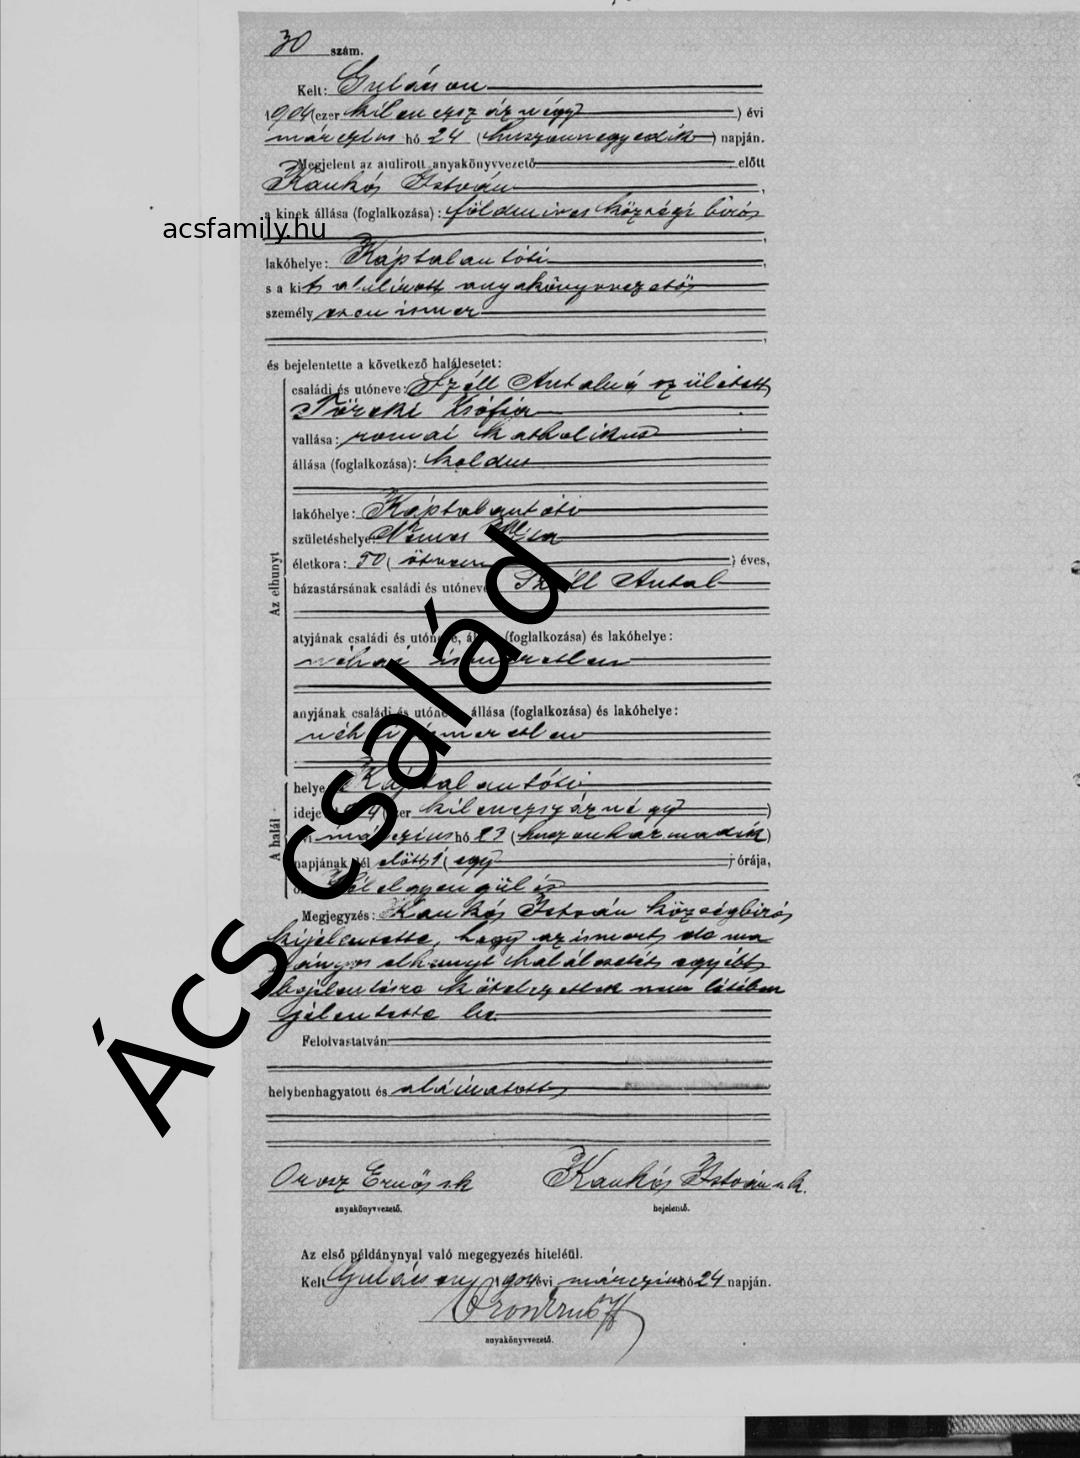 30 szám.
Kelt: Gulácson
1904 (ezer kilenczszáznégy) évi
márczius hó 24 (huszonnegyedik) napján.
Megjelent az alulirott anyakönyvvezető előtt
Kaukós István,
a kinek állása (foglalkozása): földmíves községi bírós
acsfamily.hu
lakóhelye: Káptalantóti,
s a kit alulírott anyakönyvvezetős
személyesen ismer
és bejelentette a következő halálesetet:
családi és utóneve: Széll Antalné született
Töreki Zsófia
vallása: romai katholikus
állása (foglalkozása): koldus
lakóhelye: Káptalantóti
születéshelye: Nemes
életkora: 50 (ötven) éves,
házastársának családi és utóneve: Széll Antal
Az elhunyt
atyjának családi és utóneve, állása (foglalkozása) és lakóhelye:
néhai ismeretlen
anyjának családi és utóneve, állása (foglalkozása) és lakóhelye:
néhai ismeretlen
Ács család
helye: Káptalantóti
ideje: 1904 (ezer kilenczszáznégy)
évi márczius hó 23 (huszonharmadik)
A halál
napjának dél előtti 1 (egy) órája,
oka: Vél elgyengülés
Megjegyzés: Kaukós István községbírós
kijelentette, hogy az ismert
elhunyt halálesetét egyébb
bejelentésre kötelezettek nem létében
jelentette be.
Felolvastatván
helybenhagyatott és aláíratott
Orosz Ernős sk
Kaukós István s. k.
anyakönyvvezető.
bejelentő.
Az első példánynyal való megegyezés hiteléül.
Kelt Gulácson, 1904 évi márczius hó 24 napján.
Orosz Ernő
anyakönyvvezető.